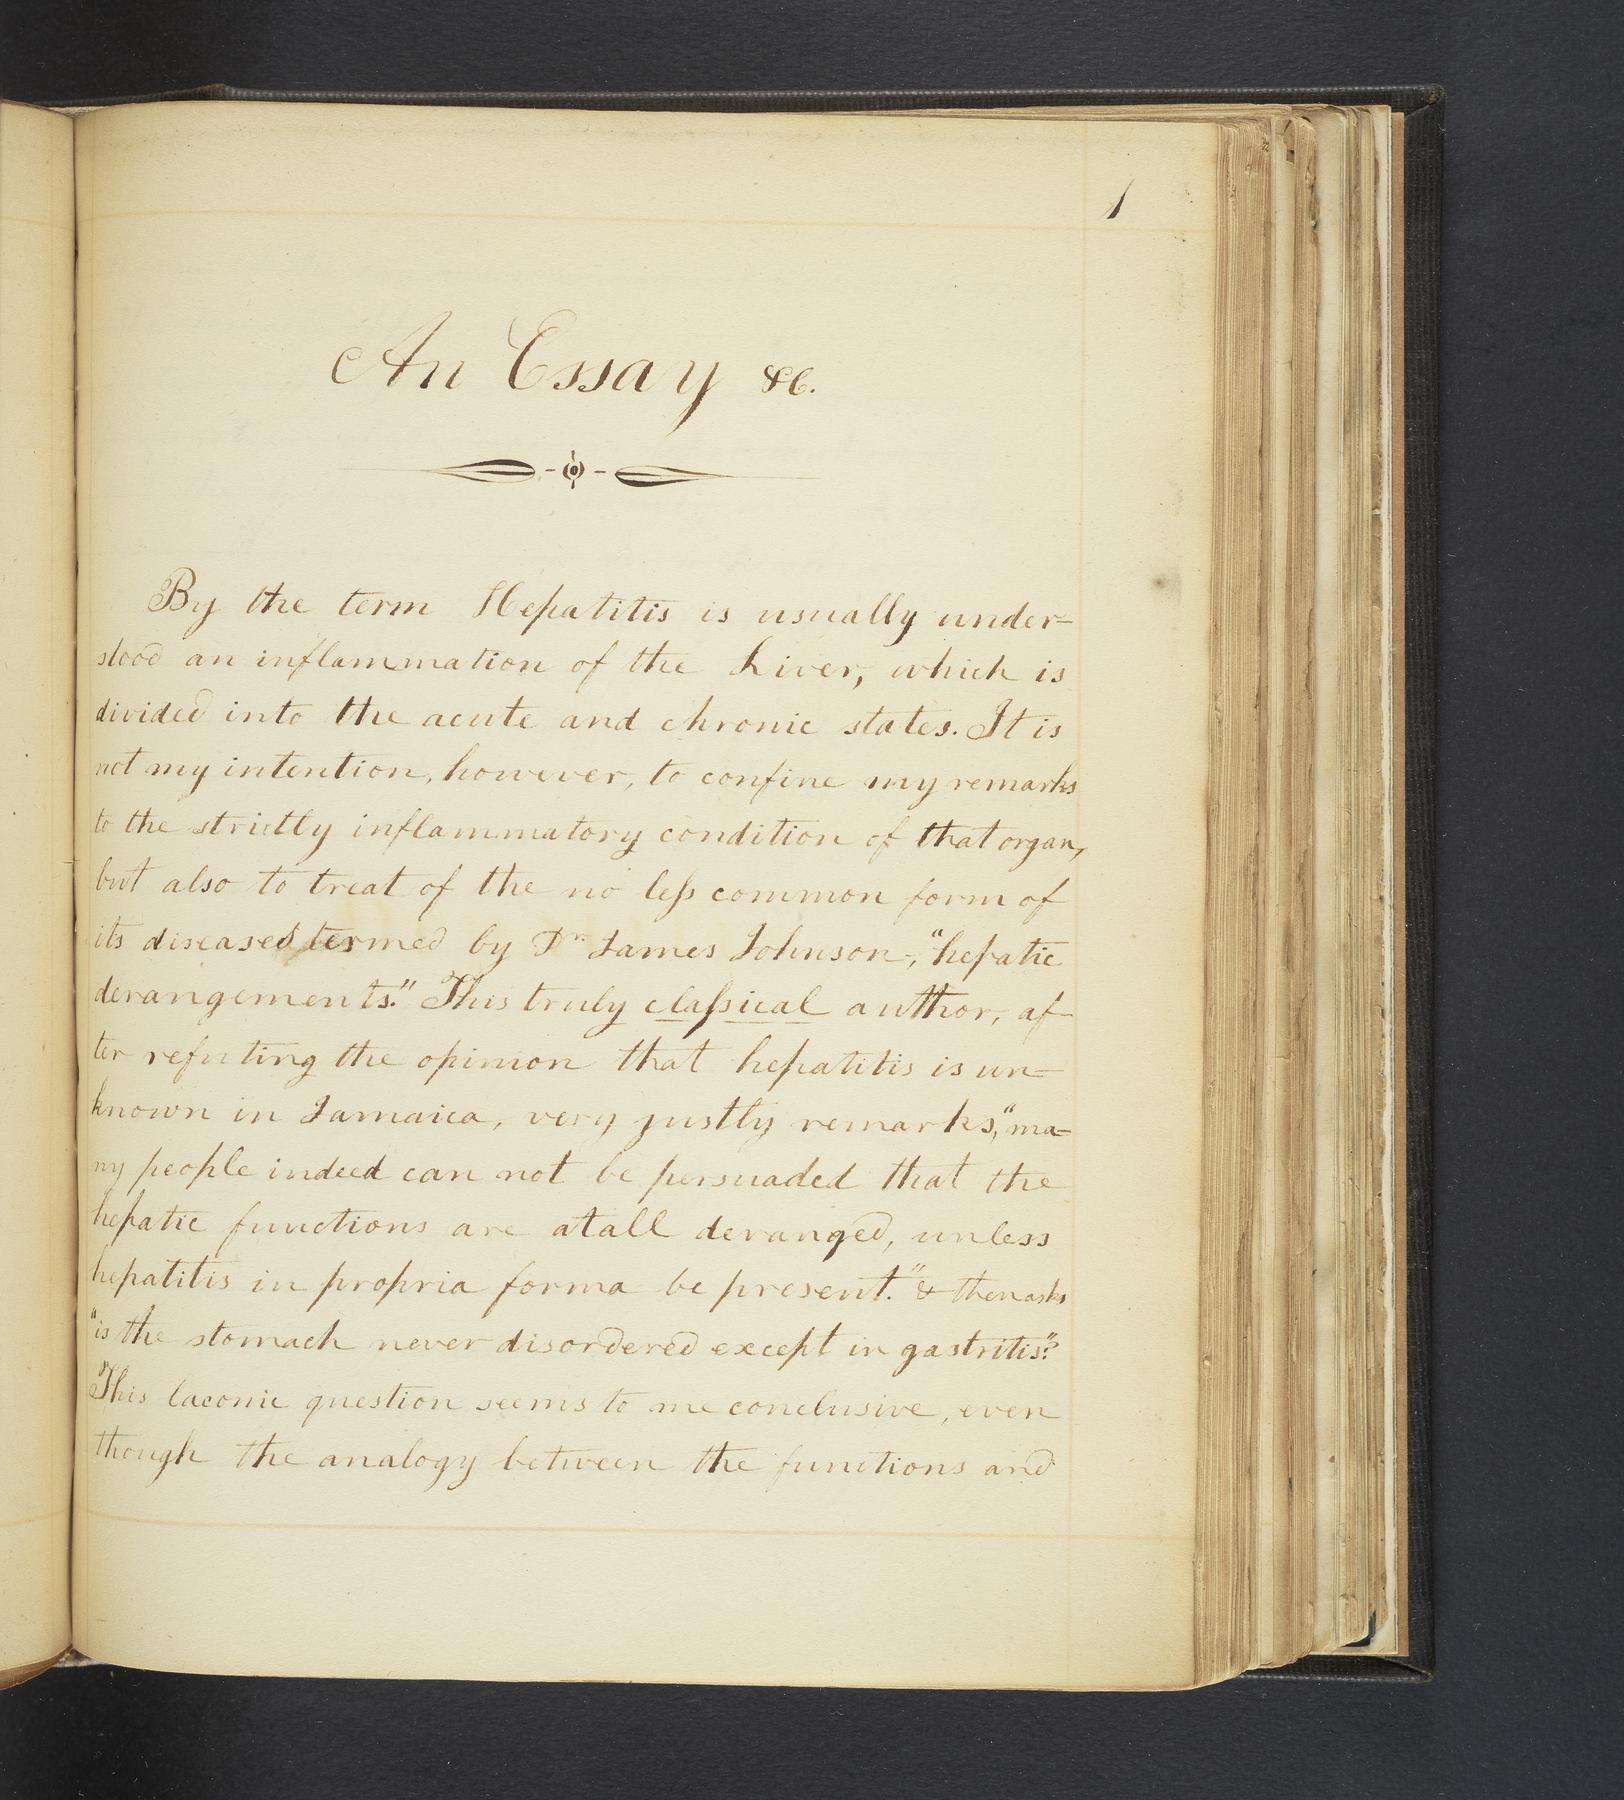 1
An Essay &c.
By the term Hepatitis is usually under=
stood an inflammation of the Liver, which is
divided into the acute and chronic states. It is
not my intention, however, to confine my remarks
to the strictly inflammatory condition of that organ,
but also to treat of the no leſs common form of
its diseases termed by Dr. James Johnson, "hepatic
derangements." This truly claſsical author, af-
ter refuting the opinion that hepatitis is un-
known in Jamaica, very justly remarks, "ma=
ny people indeed can not be persuaded that the
hepatic functions are atall deranged, unless
hepatitis in propria forma be present." & then asks
"is the stomach never disordered except in gastritis"?
This laconic question seems to me conclusive, even
though the analogy between the functions and